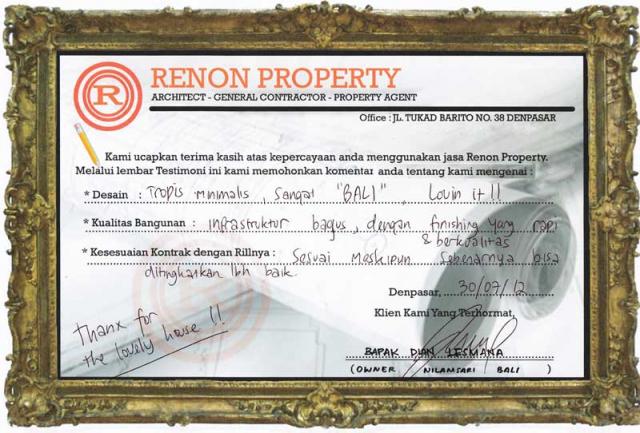 R
RENON PROPERTY
ARCHITECT - GENERAL CONTRACTOR - PROPERTY AGENT
Office : JL. TUKAD BARITO NO. 38 DENPASAR
Kami ucapkan terima kasih atas kepercayaan anda menggunakan jasa Renon Property.
Melalui lembar Testimoni ini kami memohonkan komentar anda tentang kami mengenai :
* Desain : Tropis minimalis, Sangat "BALI", Lovin it !!
* Kualitas Bangunan : infrastruktur bagus, dengan finishing yang rapi
& berkualitas
* Kesesuaian Kontrak dengan Rillnya : Sesuai Meskipun Sebenarnya bisa
ditingkatkan lbh baik.
Denpasar, 30/07/12
Klien Kami Yang Terhormat,
Thanx for
the lovely house !!
BAPAK DIAN
(OWNER NILAMSARI BALI )